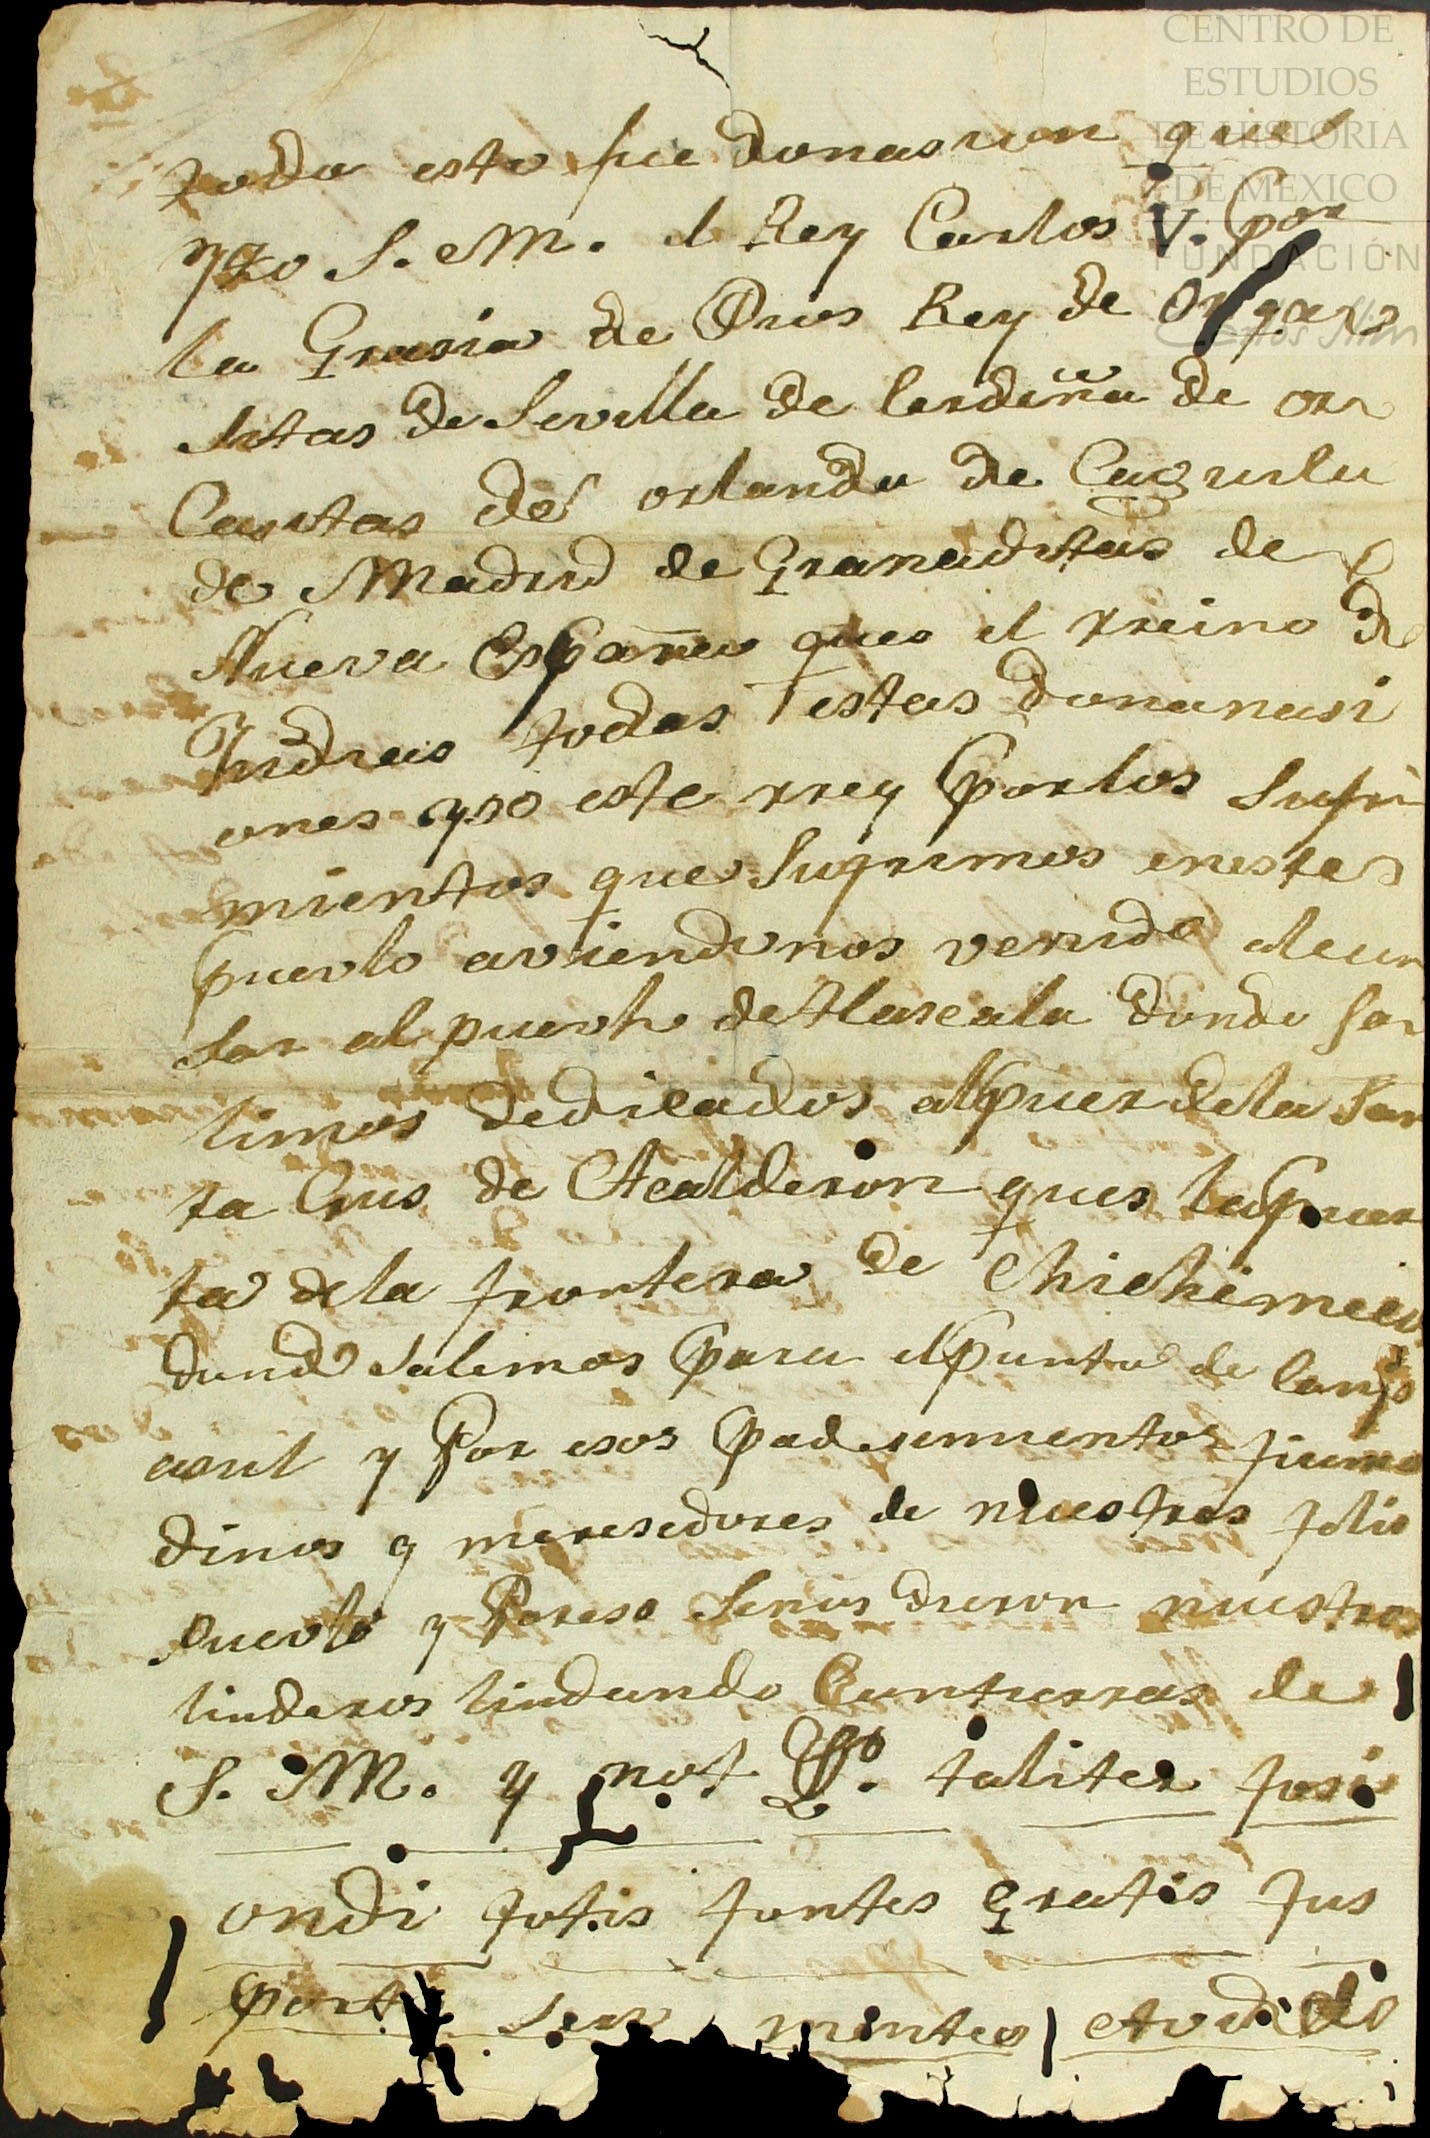 CENTRO DE
ESTUDIOS
DE HISTORIA
DE MEXICO
FUNDACIÓN
Carlos Slim
todo esto fue donasion que
yzo S. M. el Rey Carlos V. por
la Grasia de Dios Rey de
sitas de Sevilla de Cerdeña de
Casitas de orlanda de
de Madrid de Granaditas de
Nueva España ques el rreino de
Indias todas estas donanasi
ones yso este rrey por los sufri
mientos que sufrimos en este
pueblo aviendonos venido
sar al pueblo de tlascala donde sar
limos dedicados al puer de la San
ta Crus de Acalderon ques la puer
ta de la frontera de Chichimeca
donde salimos para el punto de
y por esos padesimientos fuimo
dinos y meresedores de nuestros
puevlo y Poreso senos dieron nuestros
linderos lindando Contierras de
S. M. y not taliter
ondi totis fontes gratis Jus
mentes